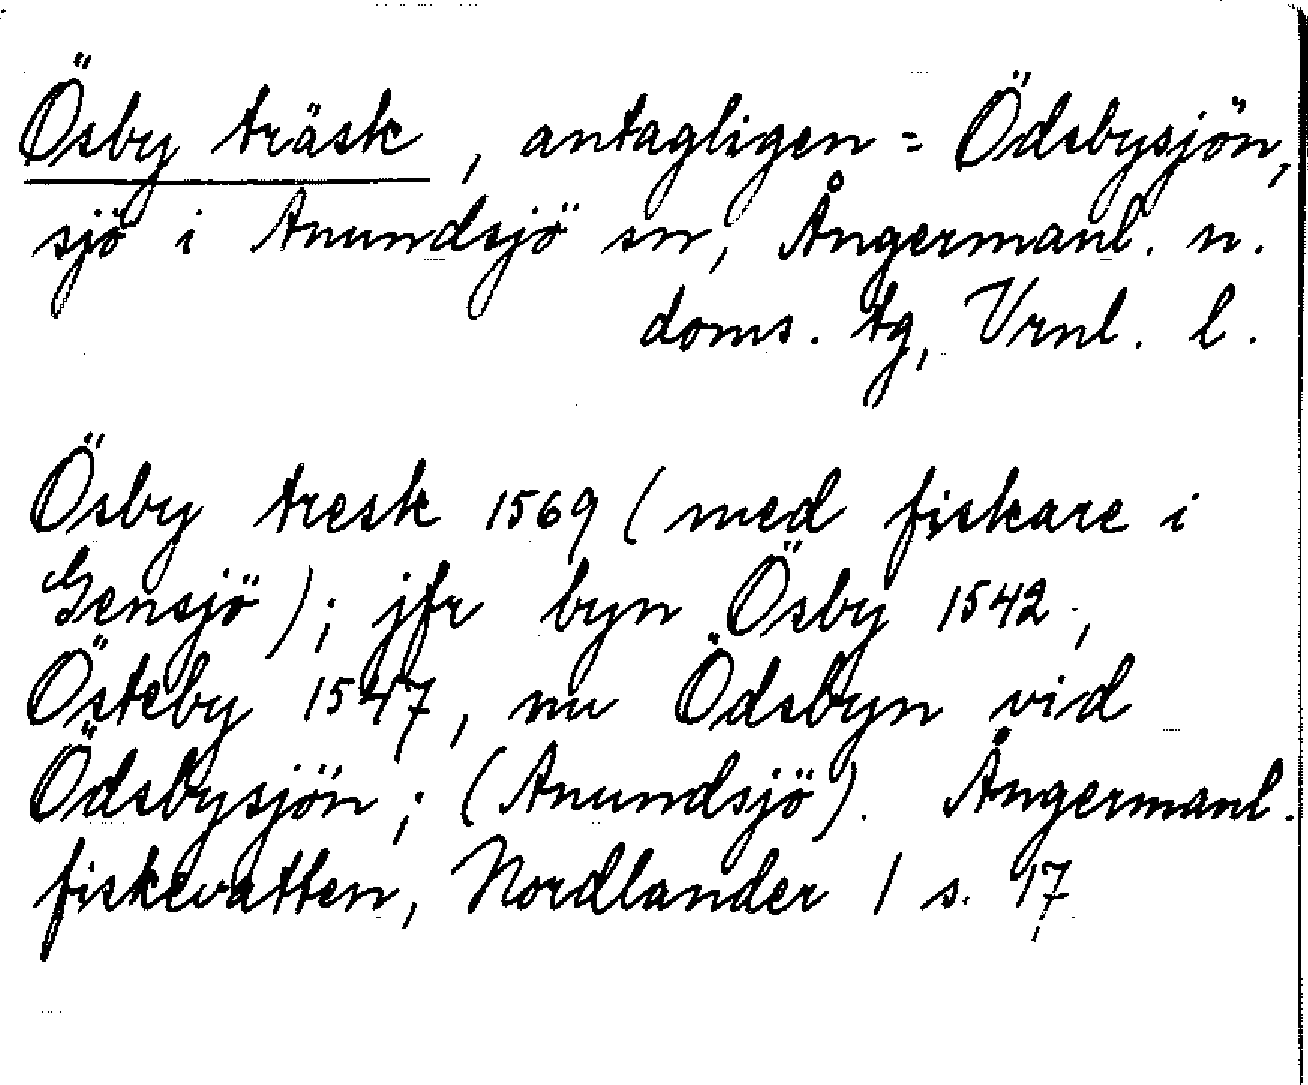 Ösby träsk, antagligen = Ödsbysjön,
sjö i Anundsjö sn, Ångermanl. n.
doms. tg, Vrnl. l.
Ösby tresk 1569 (med fiskare i
Gensjö); jfr byn Ösby 1542,
Östeby 1547, nu Ödsbyn vid
Ödsbysjön; (Anundsjö). Ångermanl.
fiskevatten, Nordlander 1 s. 17